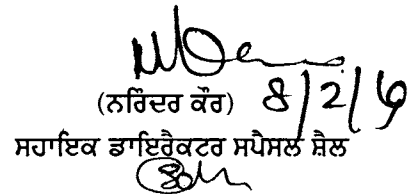 (ਨਰਿੰਦਰ ਕੌਰ) 8/2/6
ਸਹਾਇਕ ਡਾਇਰੈਕਟਰ ਸਪੈਸਲ ਸ਼ੈਲ